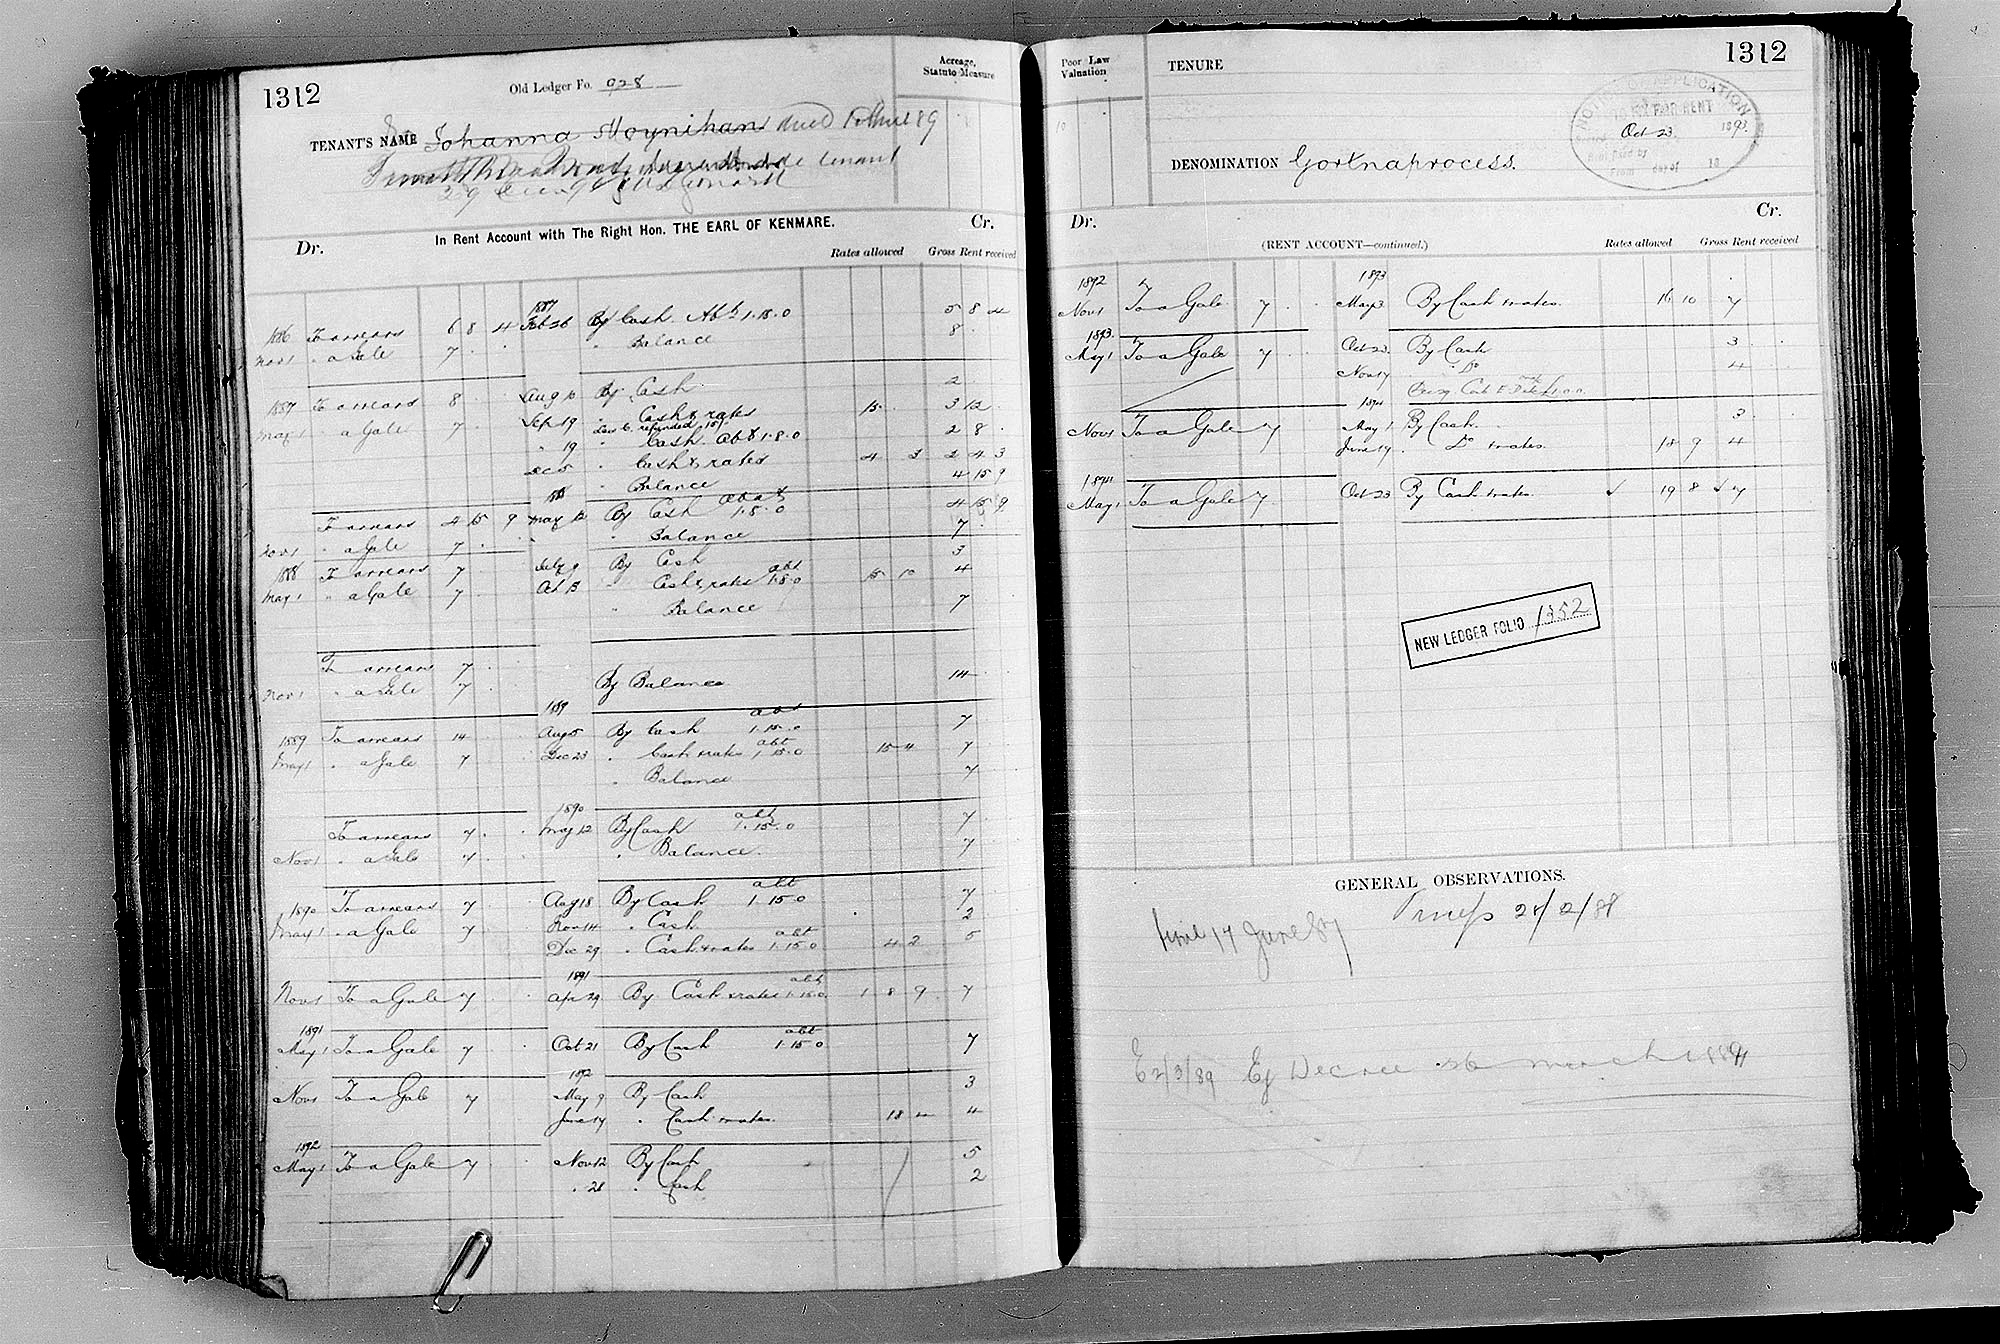 1312
Old Ledger Fo. 928
Acreage, Statute Measure
TENANT'S NAME Johanna Moynihan died
tenant
In Rent Account with The Right Hon. THE EARL OF KENMARE.
Dr. Cr.
Rates allowed Gross Rent received
1887
1886 To arrears 6 8 4 Feb 26 By Cash Abt 1.18.0 5 8 4
Nov 1 " a Gale 7 . . " Balance 8
1887 To arrears 8 . . Aug 10 By Cash 2
May 1 " a Gale 7 . . Sep 19 " Cash & rates 15 . 3 12 .
Law C. refunded 15/.
" 19 " Cash abt 1.8.0 2 8 .
Dec 5 " Cash & rates 4 3 2 4 3
" Balance 4 15 9
188
To arrears 4 15 9 May 12 By Cash abat 1.5.0 4 15 9
Nov 1 " a Gale 7 . . " Balance 7
1888 To arrears 7 . July 9 By Cash 3
May 1 " a Gale 7 . Oct 13 " Cash & rates abt 1.8.0 15 10 4
" Balance 7
To arrears 7 .
Nov 1 " a Gale 7 . By Balance 14
1889
1889 To arrears 14 . Aug 5 By Cash abt 1.15.0 7
May 1 " a Gale 7 Dec 23 " Cash & rates abt 1.15.0 15 4 7
" Balance 7
1890
To arrears 7 . . May 12 By Cash abt 1.15.0 7
Nov 1 " a Gale 7 . " Balance 7
1890 To arrears 7 . Aug 18 By Cash abt 1.15.0 7
May 1 " a Gale 7 . Nov 14 " Cash 2
Dec 29 " Cash & rates abt 1.15.0 4 2 5
1891
Nov 1 To a Gale 7 . . Apr 29 By Cash & rates abt 1.15.0 1 8 9 7
1891
May 1 To a Gale 7 . . Oct 21 By Cash abt 1.15.0 7
1892
Nov 1 To a Gale 7 May 9 By Cash 3
June 17 " Cash & rates. 18 4 4
1892
May 1 To a Gale 7 . . Nov 12 By Cash 5
" 28 " Cash 2
Poor Law Valuation
TENURE
1312
10
NOTICE OF APPLICATION
TO FIX FAIR RENT
Oct 23 1893
Rent paid by
From day of 18
DENOMINATION Gortnaprocess.
Dr. Cr.
(RENT ACCOUNT—continued.)
Rates allowed Gross Rent received
1892 1893
Nov 1 To a Gale 7 . . May 3 By Cash & rates. 16 10 7
1893.
May 1 To a Gale 7 . . Oct 23 By Cash 3 .
Nov 17 " Do 4 .
1894
Nov 1 To a Gale 7 May 1 By Cash. 3
June 14 . Do & rates. 18 9 4
1894
May 1 To a Gale 7 . Oct 23 By Cash & rates. ✓ 19 8 ✓ 7
NEW LEDGER FOLIO 1352
GENERAL OBSERVATIONS.
17 June 87
E 2/3/89 Ej Decree 26 March 1889